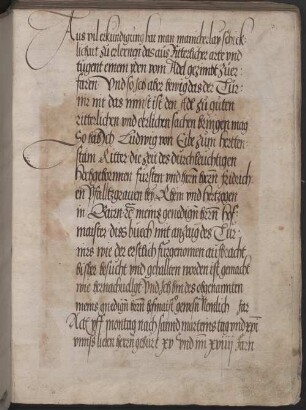 Aus vil erkundigung hat man maincherlay schick
lichait zu erlernen das aus Ritterlicher arte vnd
tugent einem yden vom Adel gezimbt zuer
faren Vnd so sich aber bewig das der Tur
nir nit das minst ist den Adel zu guten
ritterlichen vnd erlichen sachen bringen mag
So hab Ich Ludwig von Eibe zum herten
stain Ritter die zeit des durchleuchtigen
Hochgebornen fursten vnd hern hern fridrich
en Pfalltzgrauen bey Rein vnd hertzogen
in Beirn meins genedigen hern hof
maister diss buech mit anzaig des Tur
nirs wie der erstlich furgenomen auffbracht
bisher besucht vnd gehallten worden ist gemacht
wie hernachuolgt Vnd ich bin des obgenannten
meins gnedigen hern hofmaister gewesen
Act vff montag nach sannd marteins tag vnd
vnnsers lieben herrn geburt xv vnd im xviiij Jarn